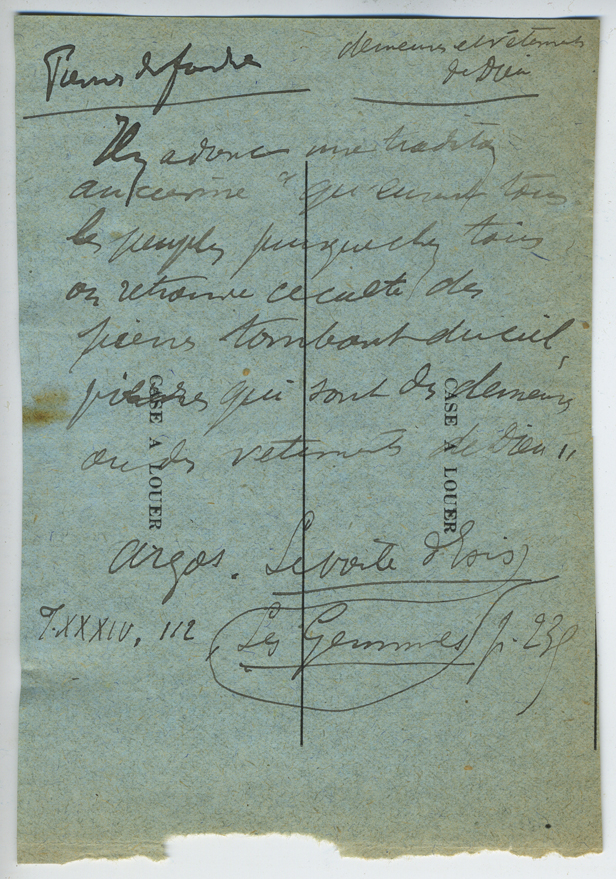 Pierres de foudre
demeures et vêtements
de Dieu
Il y a donc une tradition
ancienne " qu'eurent tous
les peuples puisque chez tous
on retrouve ce culte des
pierres tombant du ciel,
pierres qui sont des demeures
ou des vêtements de Dieu "
CASE A LOUER
CASE A LOUER
Argos. Le voile d'Isis
T. XXXIV, 112
Les Gemmes p.